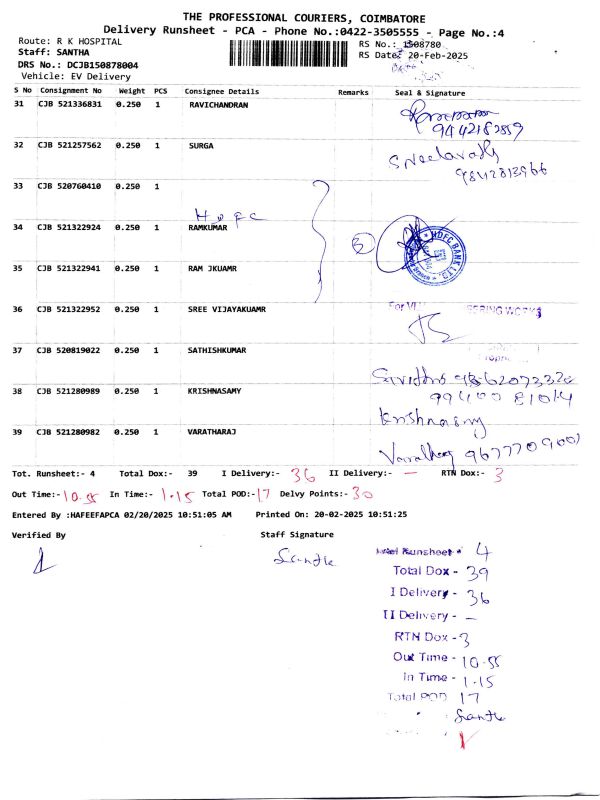 THE PROFESSIONAL COURIERS, COIMBATORE
Delivery Runsheet - PCA - Phone No.:0422-3505555 - Page No.:4
Route: R K HOSPITAL
RS No.: 1508780
Staff: SANTHA
RS Date: 20-Feb-2025
DRS No.: DCJB150878004
Vehicle: EV Delivery
S No Consignment No Weight PCS Consignee Details Remarks Seal & Signature
31 CJB 521336831 0.250 1 RAVICHANDRAN
9442182859
32 CJB 521257562 0.250 1 SURGA
9842813966
33 CJB 520760410 0.250 1
HDFC
34 CJB 521322924 0.250 1 RAMKUMAR
3
HDFC BANK LTD
35 CJB 521322941 0.250 1 RAM JKUAMR
36 CJB 521322952 0.250 1 SREE VIJAYAKUAMR
For
WORKS
37 CJB 520819022 0.250 1 SATHISHKUMAR
38 CJB 521280989 0.250 1 KRISHNASAMY
Krishnasmy
39 CJB 521280982 0.250 1 VARATHARAJ
Tot. Runsheet:- 4 Total Dox:- 39 I Delivery:- 36 II Delivery:- — RTN Dox:- 3
Out Time:- 10.55 In Time:- 1.15 Total POD:- 17 Delvy Points:- 30
Entered By :HAFEEFAPCA 02/20/2025 10:51:05 AM Printed On: 20-02-2025 10:51:25
Verified By Staff Signature
Santha
Runsheet - 4
Total Dox - 39
I Delivery - 36
II Delivery - —
RTN Dox - 3
Out Time - 10.55
In Time - 1.15
Total POD 17
Santha